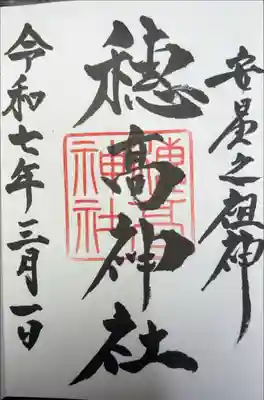 安曇之祖神
穂髙神社
令和七年三月一日
穂髙
神社